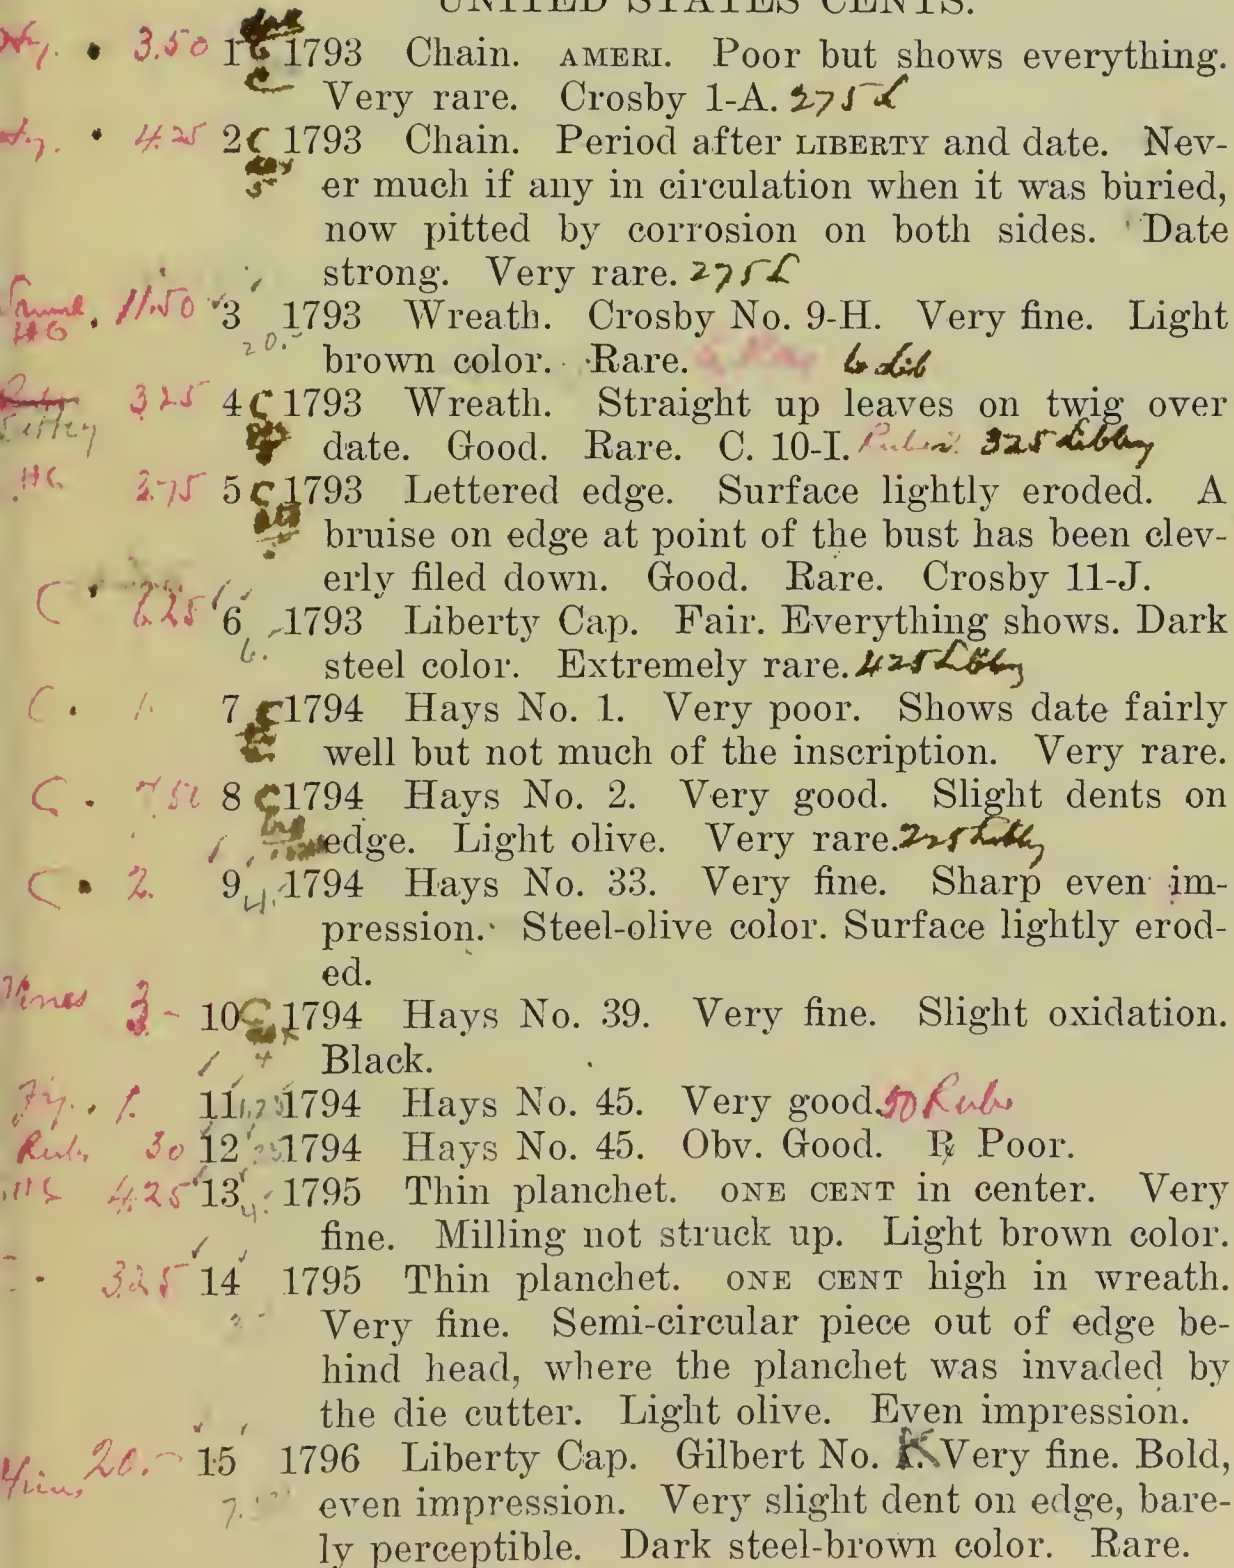 UNITED STATES CENTS.
3.50 1 1793 Chain. AMERI. Poor but shows everything.
Very rare. Crosby 1-A. 275 L
4.25 2 C 1793 Chain. Period after LIBERTY and date. Nev-
er much if any in circulation when it was buried,
now pitted by corrosion on both sides. Date
strong. Very rare. 275 L
11.50 3 1793 Wreath. Crosby No. 9-H. Very fine. Light
HG 20. brown color. Rare.
325 4 C 1793 Wreath. Straight up leaves on twig over
date. Good. Rare. C. 10-I. 325 Libbey
HG 275 5 C 1793 Lettered edge. Surface lightly eroded. A
bruise on edge at point of the bust has been clev-
erly filed down. Good. Rare. Crosby 11-J.
C 625 6 1793 Liberty Cap. Fair. Everything shows. Dark
6. steel color. Extremely rare. 425 Libbey
C 1. 7 C 1794 Hays No. 1. Very poor. Shows date fairly
well but not much of the inscription. Very rare.
C 750 8 C 1794 Hays No. 2. Very good. Slight dents on
edge. Light olive. Very rare. 225 Libbey
C 2. 9 4. 1794 Hays No. 33. Very fine. Sharp even im-
pression. Steel-olive color. Surface lightly erod-
ed.
Hines 3- 10 C 1794 Hays No. 39. Very fine. Slight oxidation.
4 Black.
1. 11 1794 Hays No. 45. Very good. 50 Rub
Rub. 30 12 1794 Hays No. 45. Obv. Good. ℞ Poor.
4.25 13 4. 1795 Thin planchet. ONE CENT in center. Very
fine. Milling not struck up. Light brown color.
325 14 1795 Thin planchet. ONE CENT high in wreath.
Very fine. Semi-circular piece out of edge be-
hind head, where the planchet was invaded by
the die cutter. Light olive. Even impression.
20.- 15 1796 Liberty Cap. Gilbert No. Very fine. Bold,
7. even impression. Very slight dent on edge, bare-
ly perceptible. Dark steel-brown color. Rare.